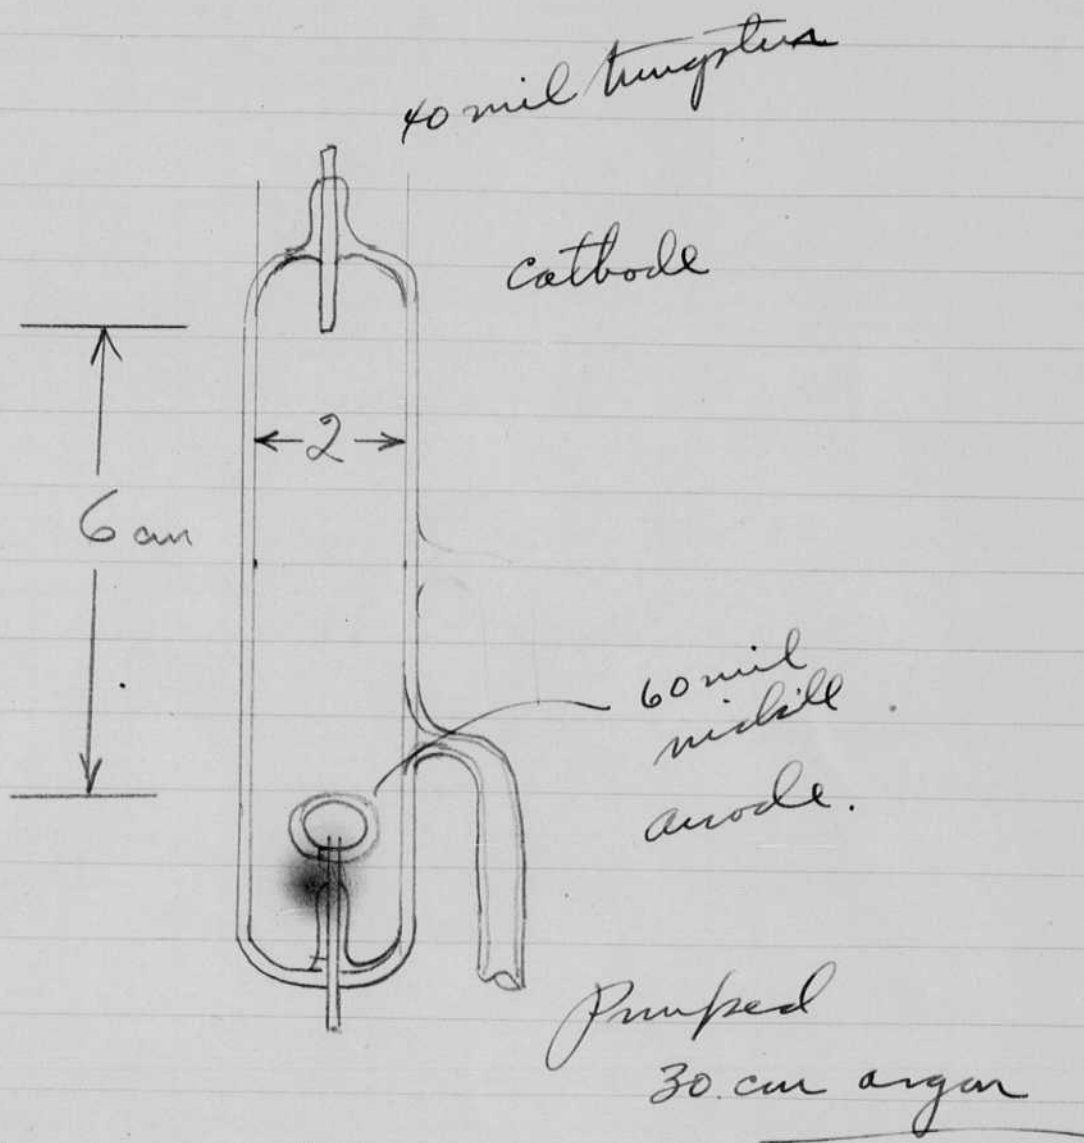 40 mil tungsten
cathode
2
6 cm
60 mil
nickile
anode.
Pumped
30. cm argon